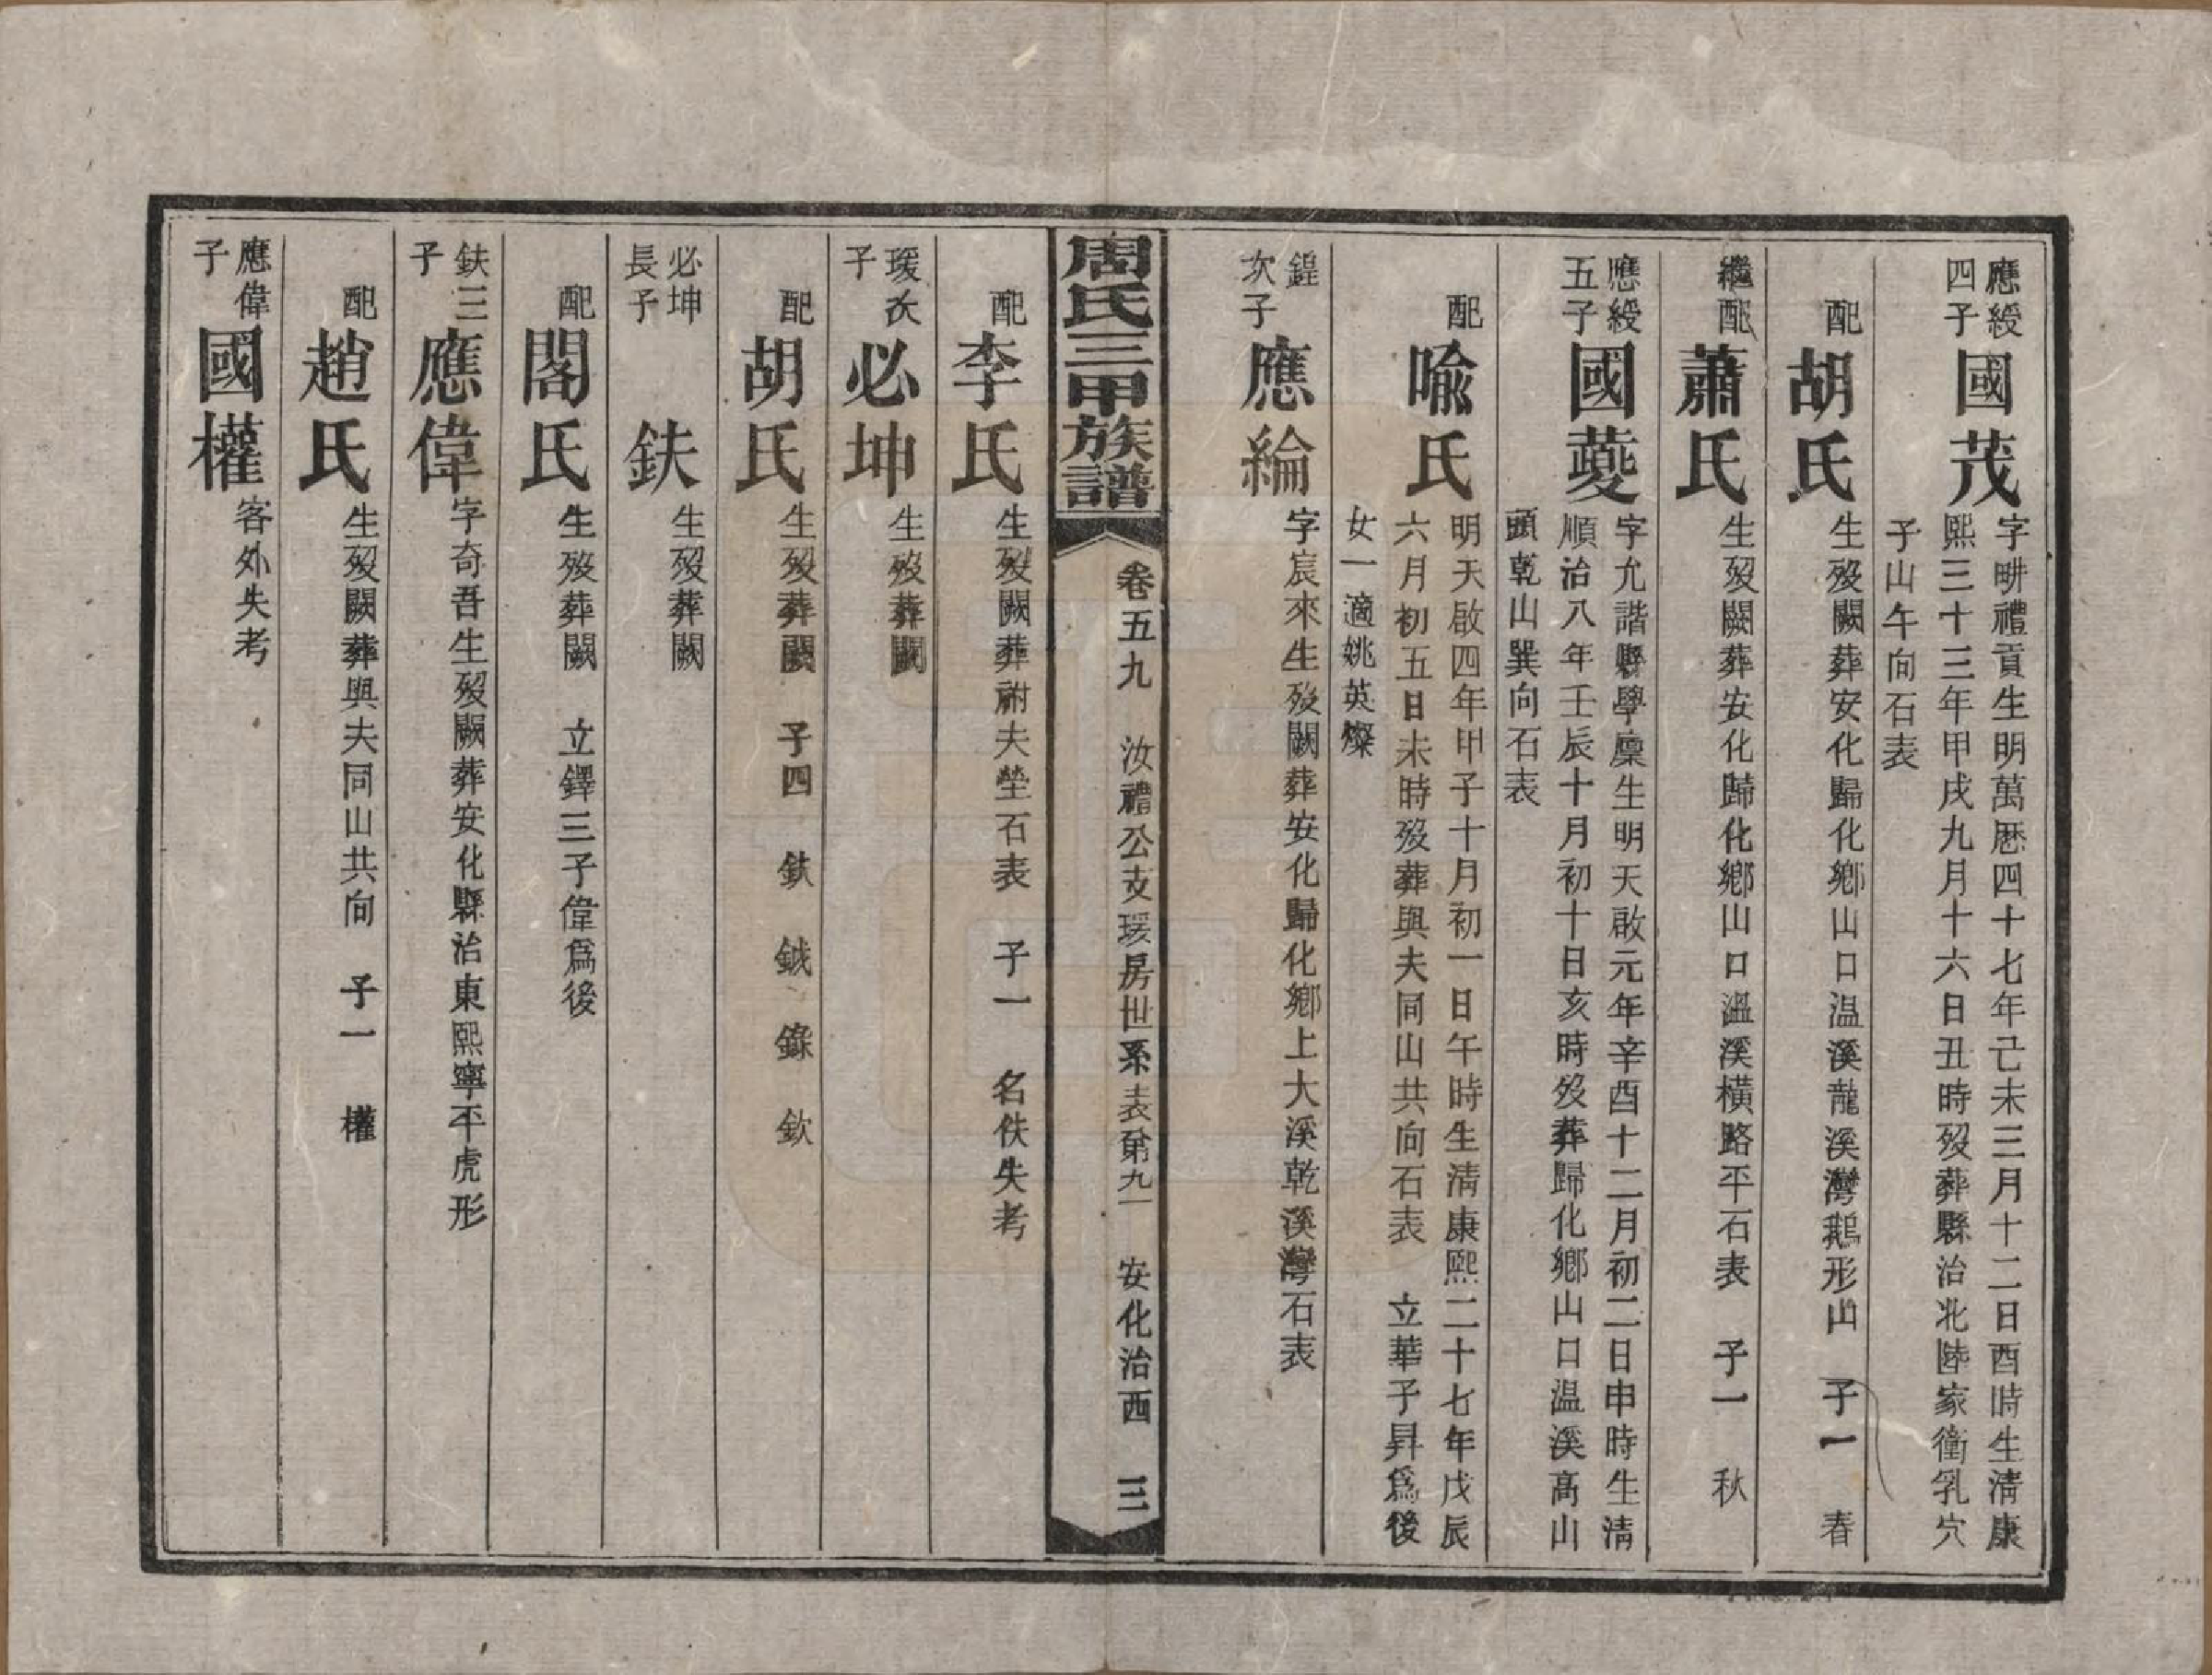 應綬
四子
國茂
字畊禮貢生明萬歷四十七年己未三月十二日酉時生清康
熙三十三年甲戌九月十六日丑時歿葬縣治北陸家衝乳穴
子山午向石表
配
胡氏
生歿闕葬安化歸化鄉山口温溪龍溪灣鵝形山 子一 春
繼配
蕭氏
生歿闕葬安化歸化鄉山口溫溪橫路平石表 子一 秋
應綬
五子
國夔
字允諧縣學廩生明天啟元年辛酉十二月初二日申時生清
順治八年壬辰十月初十日亥時歿葬歸化鄉山口温溪高山
頭乾山巽向石表
配
喻氏
明天啟四年甲子十月初一日午時生清康熙二十七年戊辰
六月初五日未時歿葬與夫同山共向石表 立華子昇爲後
女一適姚英燦
鍠
次子
應綸
字宸來生歿闕葬安化歸化鄉上大溪乾溪灣石表
周氏三甲族譜
卷五九 汝禮公支瑗房世系表第九一 安化治西 三
配
李氏
生歿闕葬祔夫塋石表 子一 名佚失考
瑗次
子
必坤
生歿葬闕
配
胡氏
生歿葬闕 子四 鈇 鉞 錄 欽
必坤
長子
鈇
生歿葬闕
配
閣氏
生歿葬闕 立鐸三子偉爲後
鈇三
子
應偉
字奇吾生歿闕葬安化縣治東熙寧平虎形
配
趙氏
生歿闕葬與夫同山共向 子一 權
應偉
子
國權
客外失考